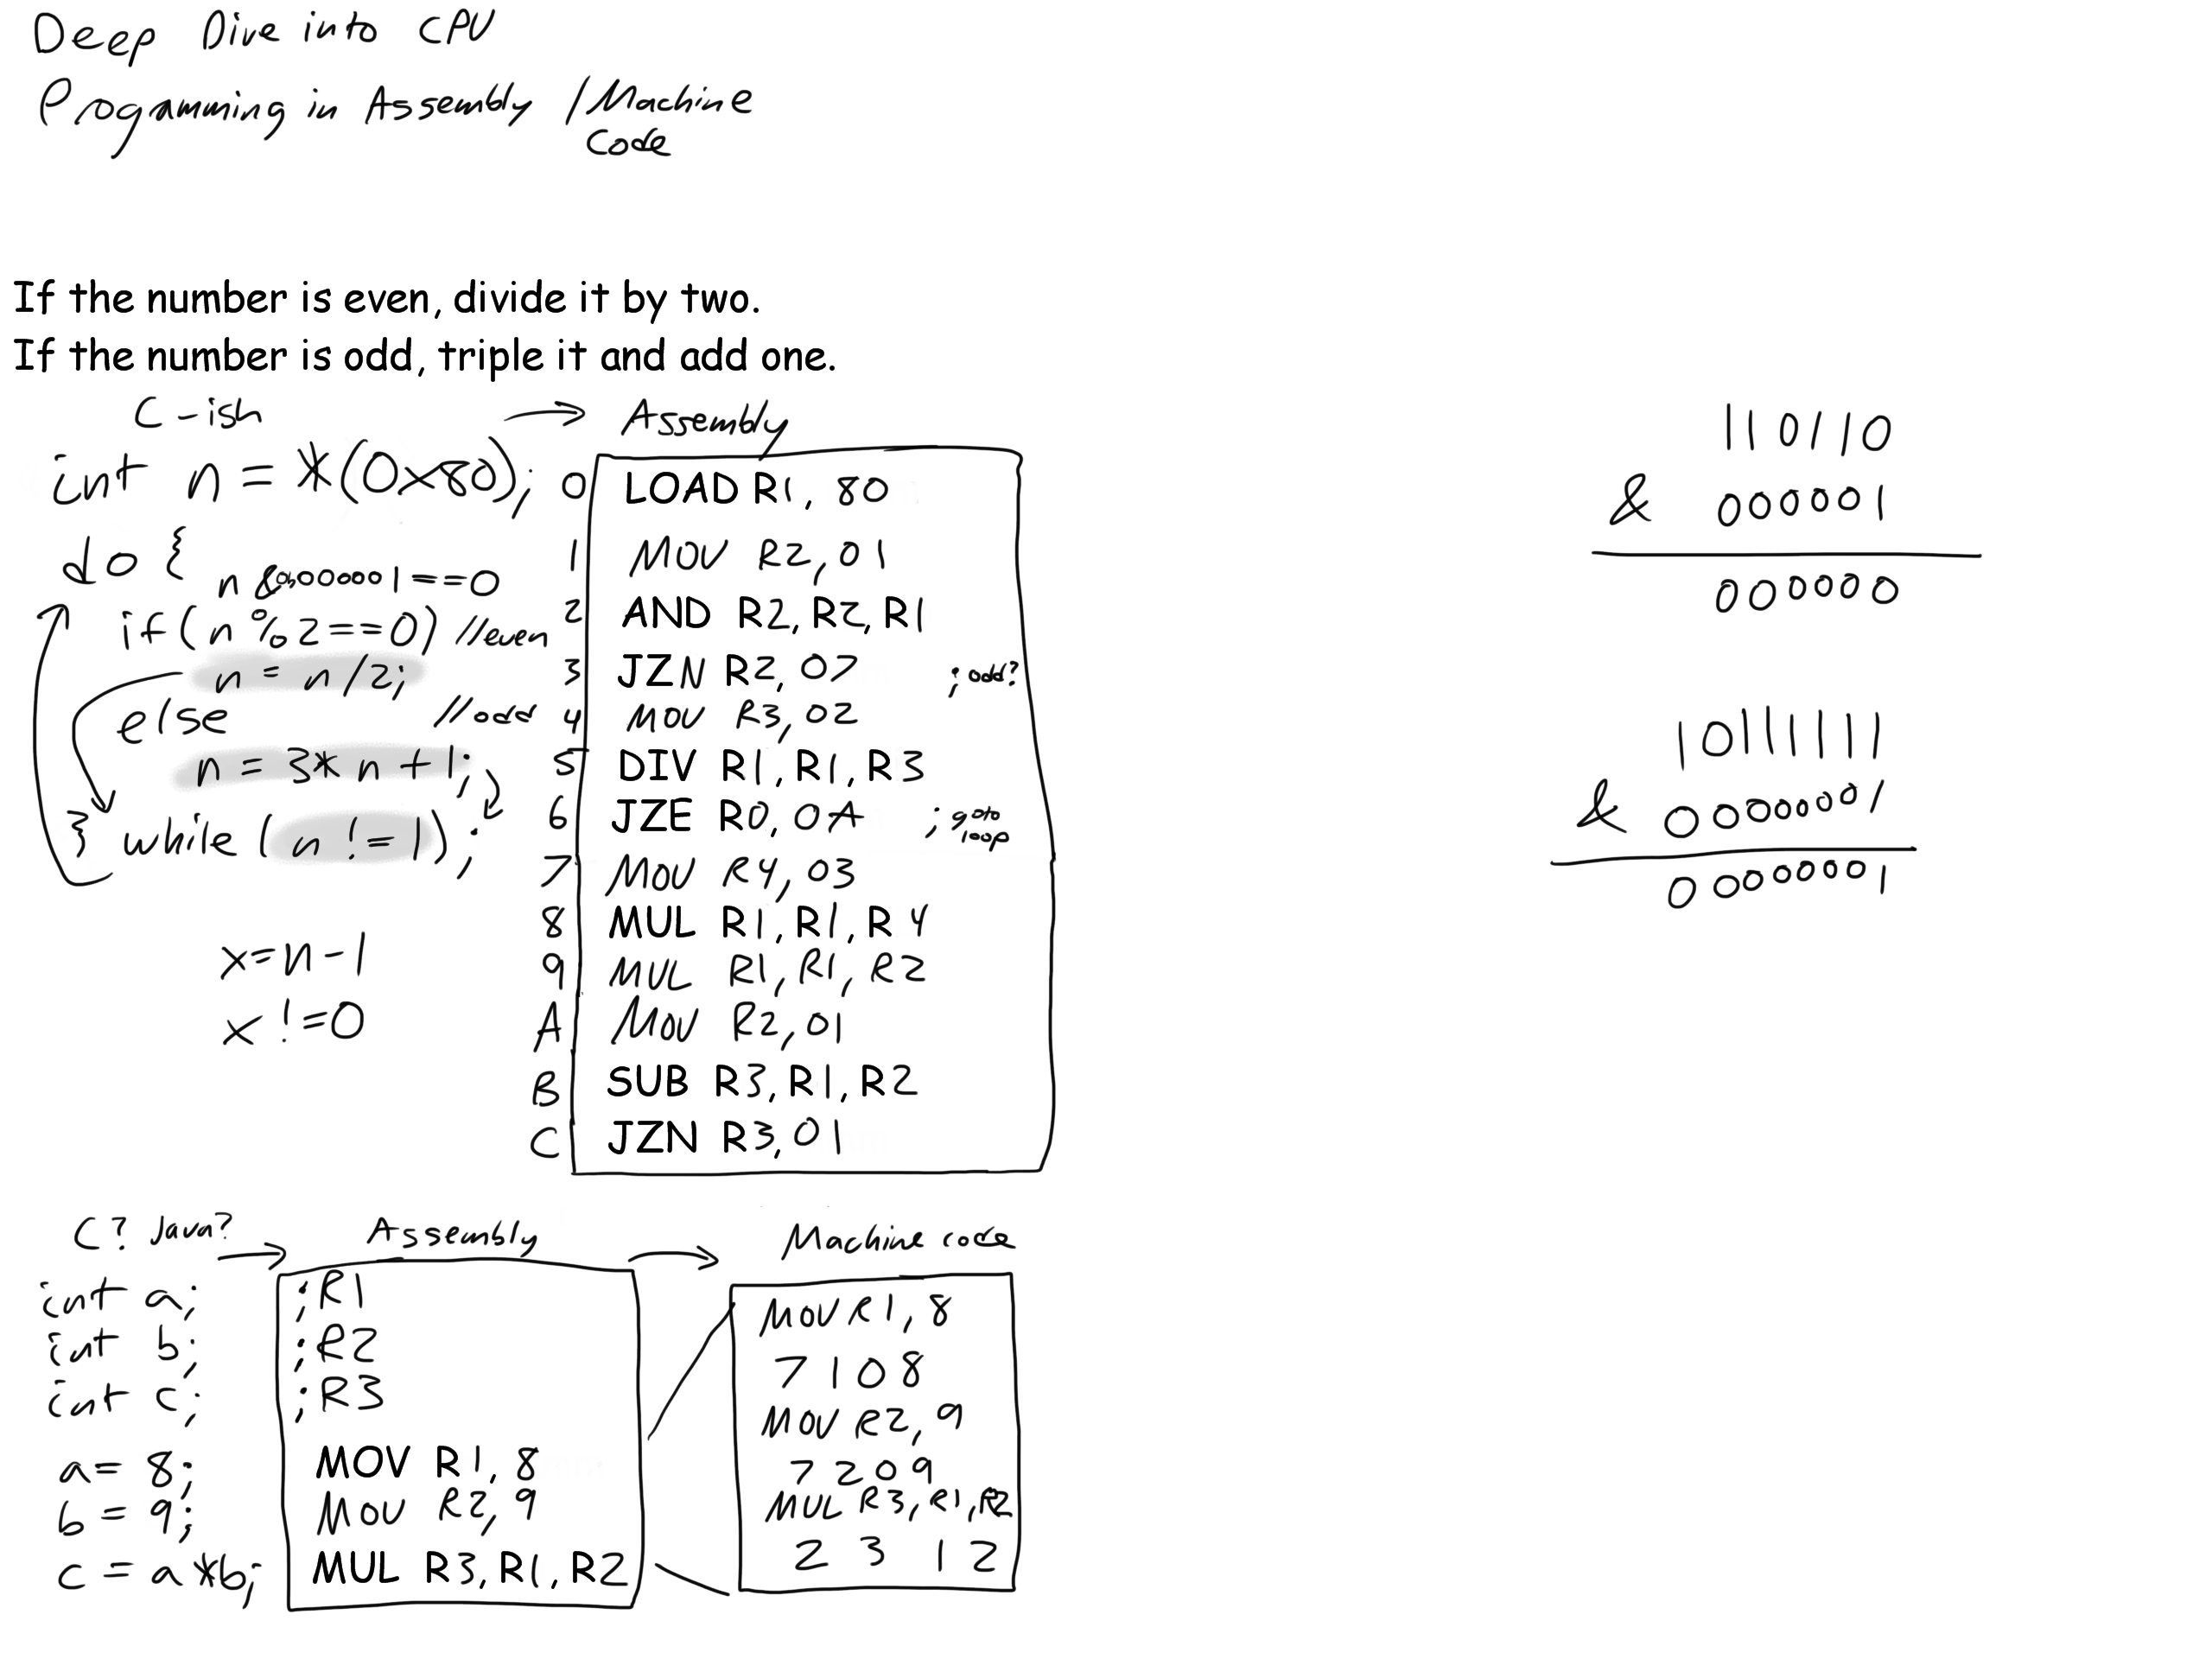 Deep Dive into CPU
Progamming in Assembly / Machine
Code
If the number is even, divide it by two.
If the number is odd, triple it and add one.
C-ish → Assembly
int n = *(0x80);
do {
n & 0b000001 == 0
if (n % 2 == 0) //even
n = n/2;
else //odd
n = 3* n + 1;
} while (n != 1);
x = n - 1
x != 0
0 LOAD R1, 80
1 MOV R2, 01
2 AND R2, R2, R1
3 JZN R2, 07 ; odd?
4 MOV R3, 02
5 DIV R1, R1, R3
6 JZE R0, 0A ; goto
loop
7 MOV R4, 03
8 MUL R1, R1, R4
9 MUL R1, R1, R2
A MOV R2, 01
B SUB R3, R1, R2
C JZN R3, 01
110110
& 000001
000000
10111111
& 00000001
00000001
C? Java? → Assembly → Machine code
int a;
int b;
int c;
a = 8;
b = 9;
c = a*b;
;R1
;R2
;R3
MOV R1, 8
MOV R2, 9
MUL R3, R1, R2
MOV R1, 8
7 1 0 8
MOV R2, 9
7 2 0 9
MUL R3, R1, R2
2 3 1 2